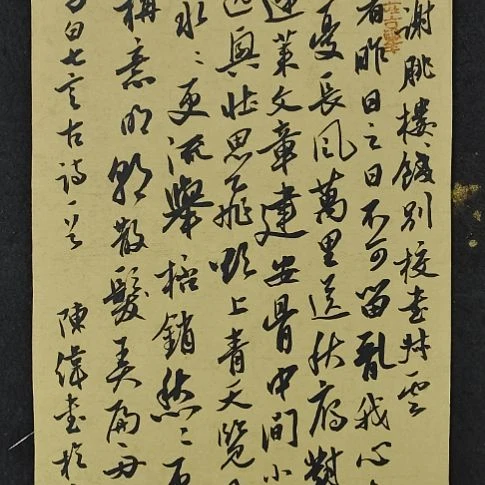 謝朓樓餞別校書叔雲
者昨日之日不可留亂我心
憂長風萬里送秋雁對
萊文章建安骨中間小
逸興壯思飛欲上青天覽
水〻更流舉杯銷愁〻更
稱意明朝散髮弄扁舟
白七言古詩一首 陳緯書於